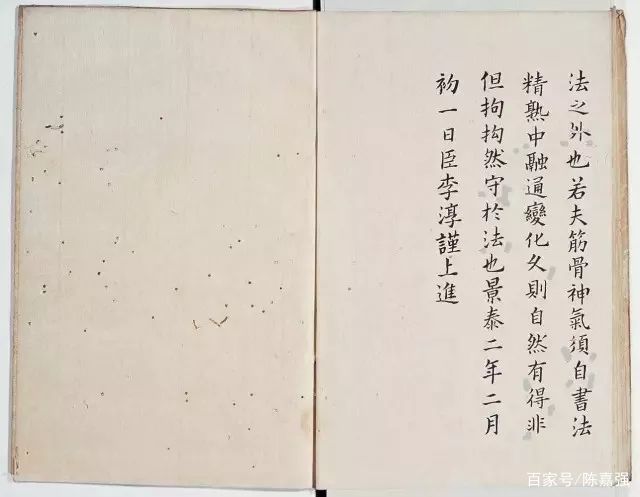 法之外也若夫筋骨神氣須自書法
精熟中融通變化久則自然有得非
但拘拘然守於法也景泰二年二月
初一日臣李淳謹上進
百家号/陈嘉强